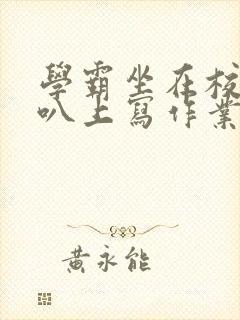 學霸坐在校
叭上寫作業
黃永能